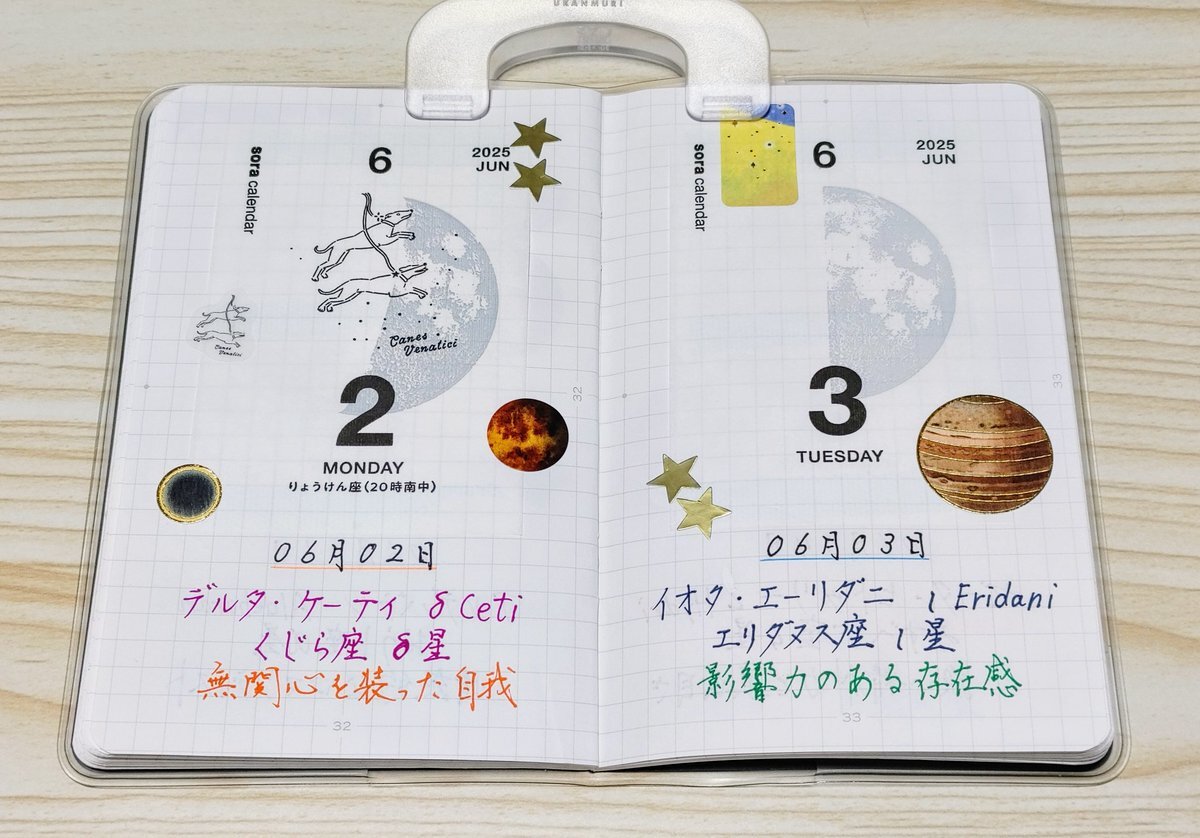 URANMURI
sora calendar
6
2025
JUN
Canes
Venatici
Canes
Venatici
2
MONDAY
りょうけん座(20時南中)
32
06月02日
デルタ・ケーティ δ Ceti
くじら座 δ星
無関心を装った自我
32
sora calendar
6
2025
JUN
33
3
TUESDAY
06月03日
イオタ・エーリダニ ι Eridani
エリダヌス座 ι星
影響力のある存在感
33